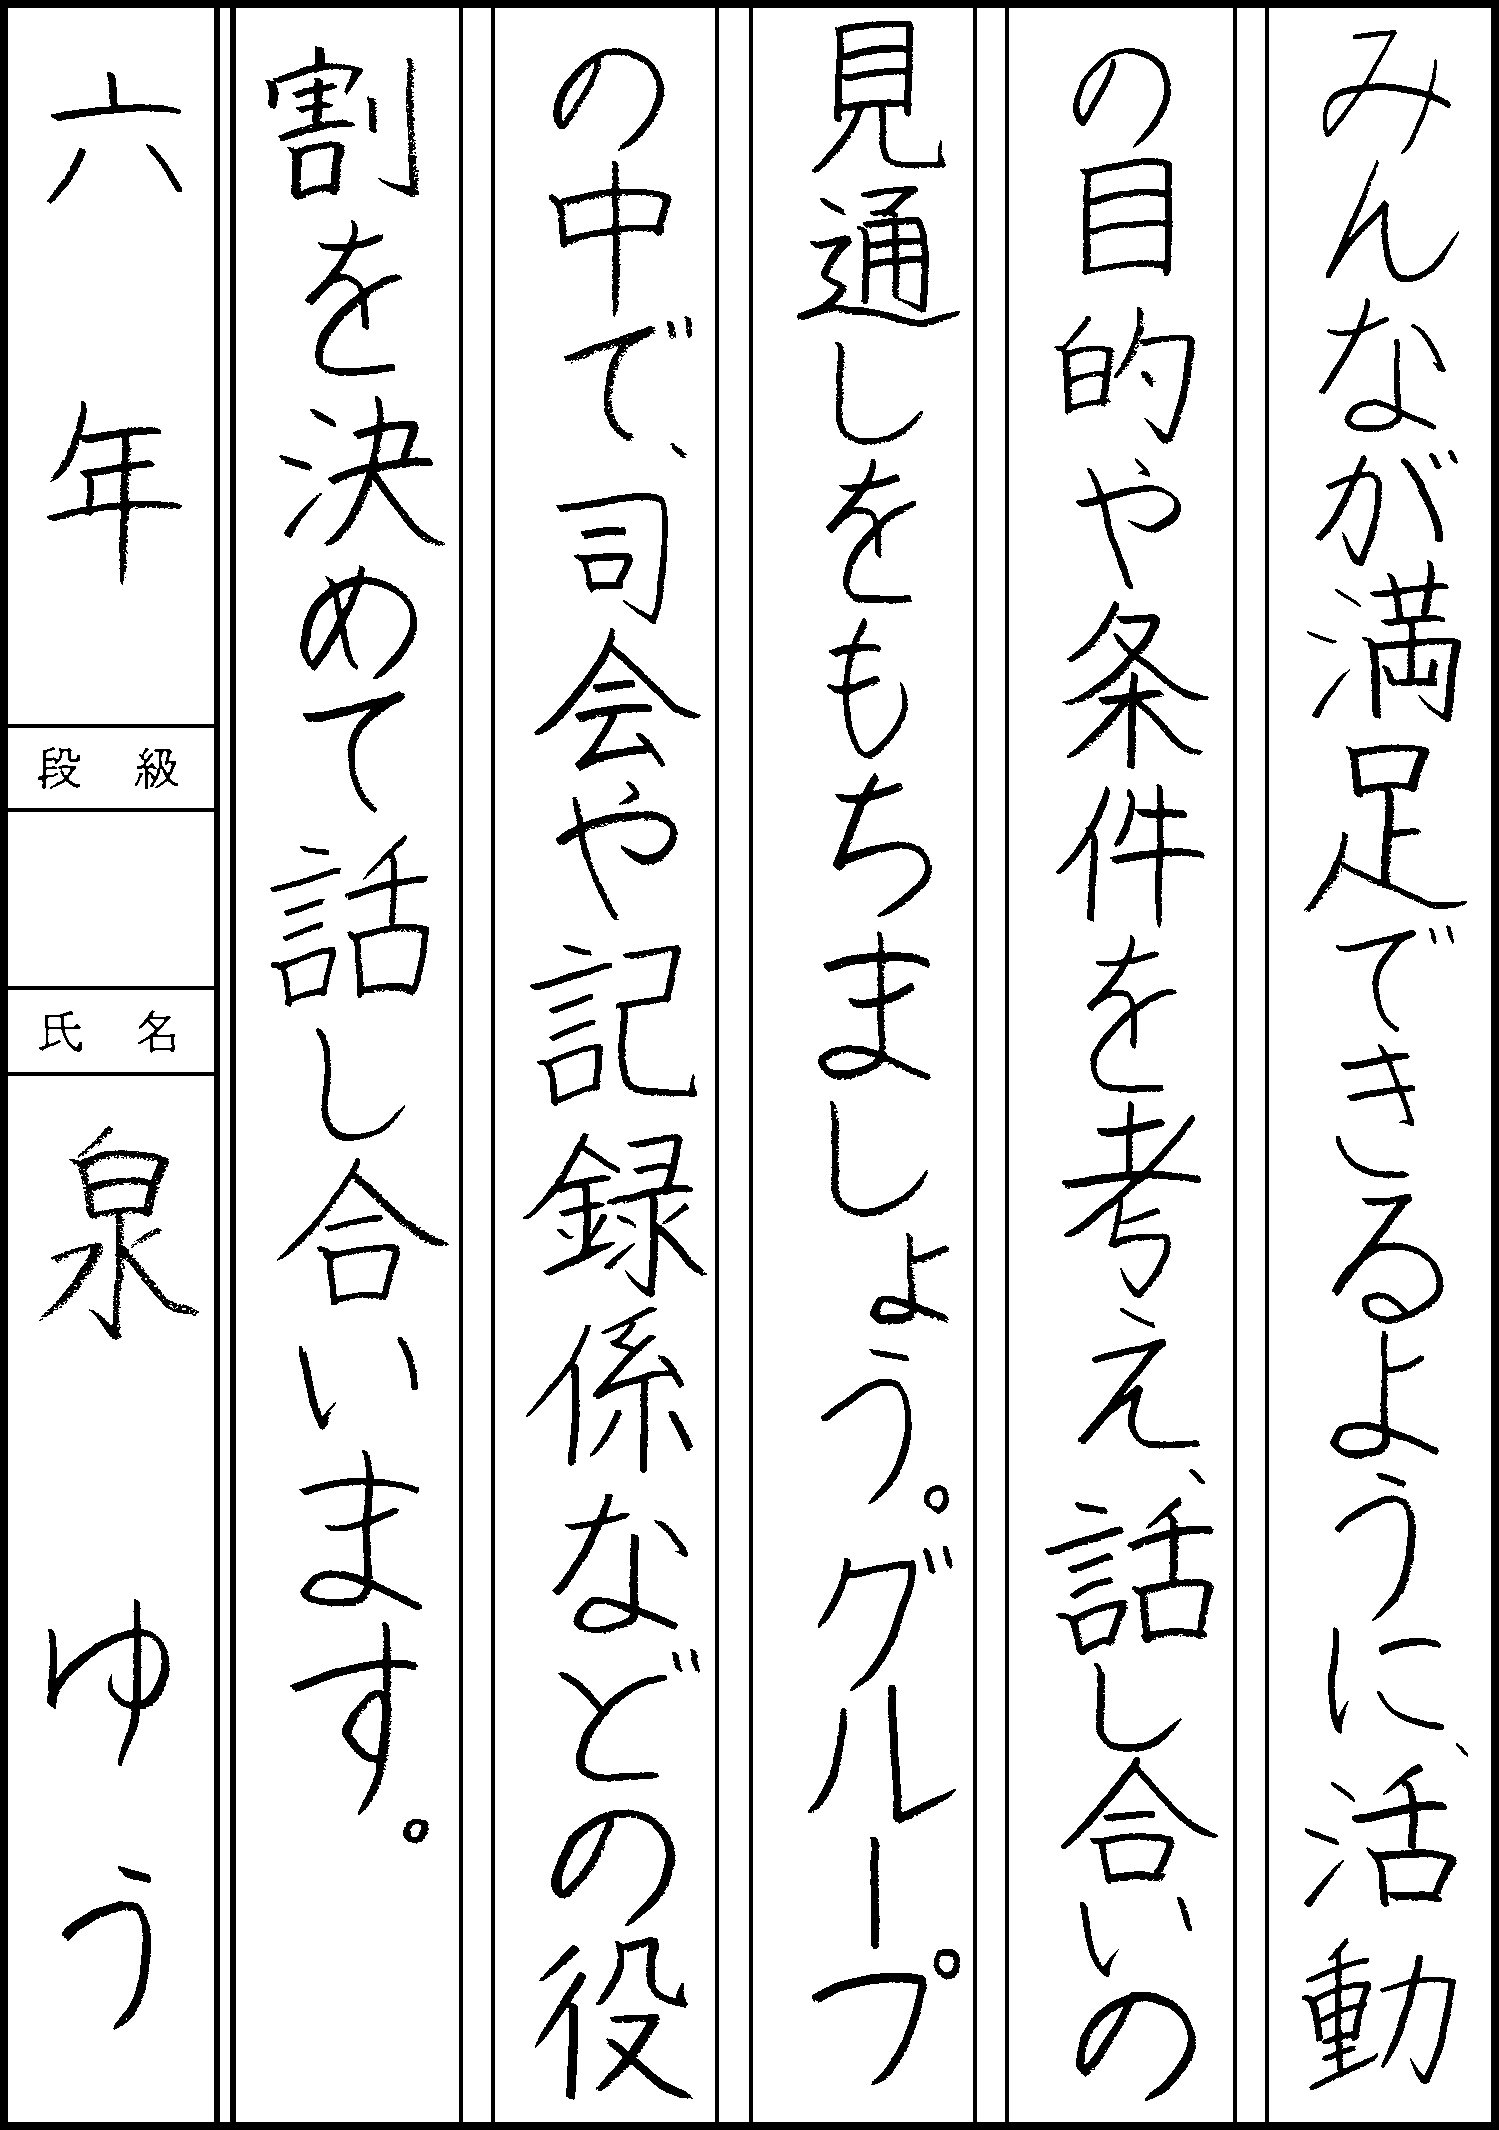 みんなが満足できるように、活動
の目的や条件を考え、話し合いの
見通しをもちましょう。グループ
の中で、司会や記録係などの役
割を決めて話し合います。
六年
段級
氏名
泉ゆう